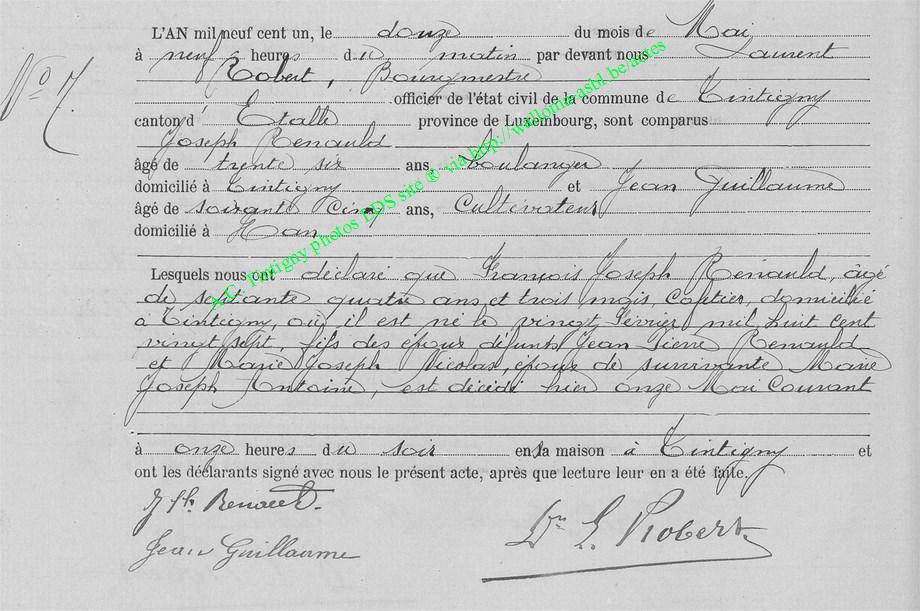 L'AN mil neuf cent un, le douze du mois de Mai
à neuf heures du matin par devant nous Laurent
Robert, Bourgmestre
N° 7.
officier de l'état civil de la commune de Tintigny
canton d'Etalle province de Luxembourg, sont comparus
Joseph Renauld
âgé de trente six ans, boulanger
domicilié à Tintigny et Jean Guillaume
âgé de soixante cinq ans, Cultivateur
domicilié à Han
Lesquels nous ont déclaré que François Joseph Renauld, âgé
de septante quatre ans et trois mois, Cafetier, domicilié
à Tintigny, où il est né le vingt Février mil huit cent
vingt sept, fils des époux défunts Jean Pierre Renauld
et Marie Joseph Nicolas, époux de survivante Marie
Joseph Antoine, est décédé hier onze Mai Courant
à onze heures du soir en sa maison à Tintigny et
ont les déclarants signé avec nous le présent acte, après que lecture leur en a été faite.
Jph Renauld.
Dr L. Robert
Jean Guillaume
A.C. Tintigny photos EDS site ® via http://wallonia.asbl.be/actes